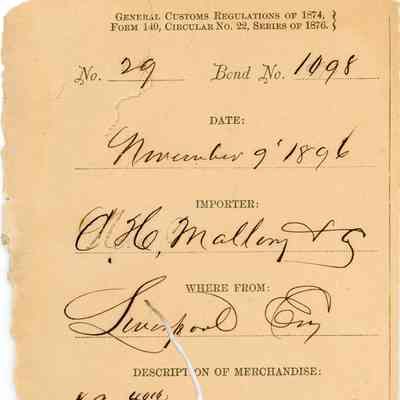 GENERAL CUSTOMS REGULATIONS OF 1874,
FORM 140, CIRCULAR NO. 22, SERIES OF 1876.
No. 29 Bond No. 1098
DATE:
November 9' 1896
IMPORTER:
C. H. Mallory & Co
WHERE FROM:
Liverpool Eng
DESCRIPTION OF MERCHANDISE: